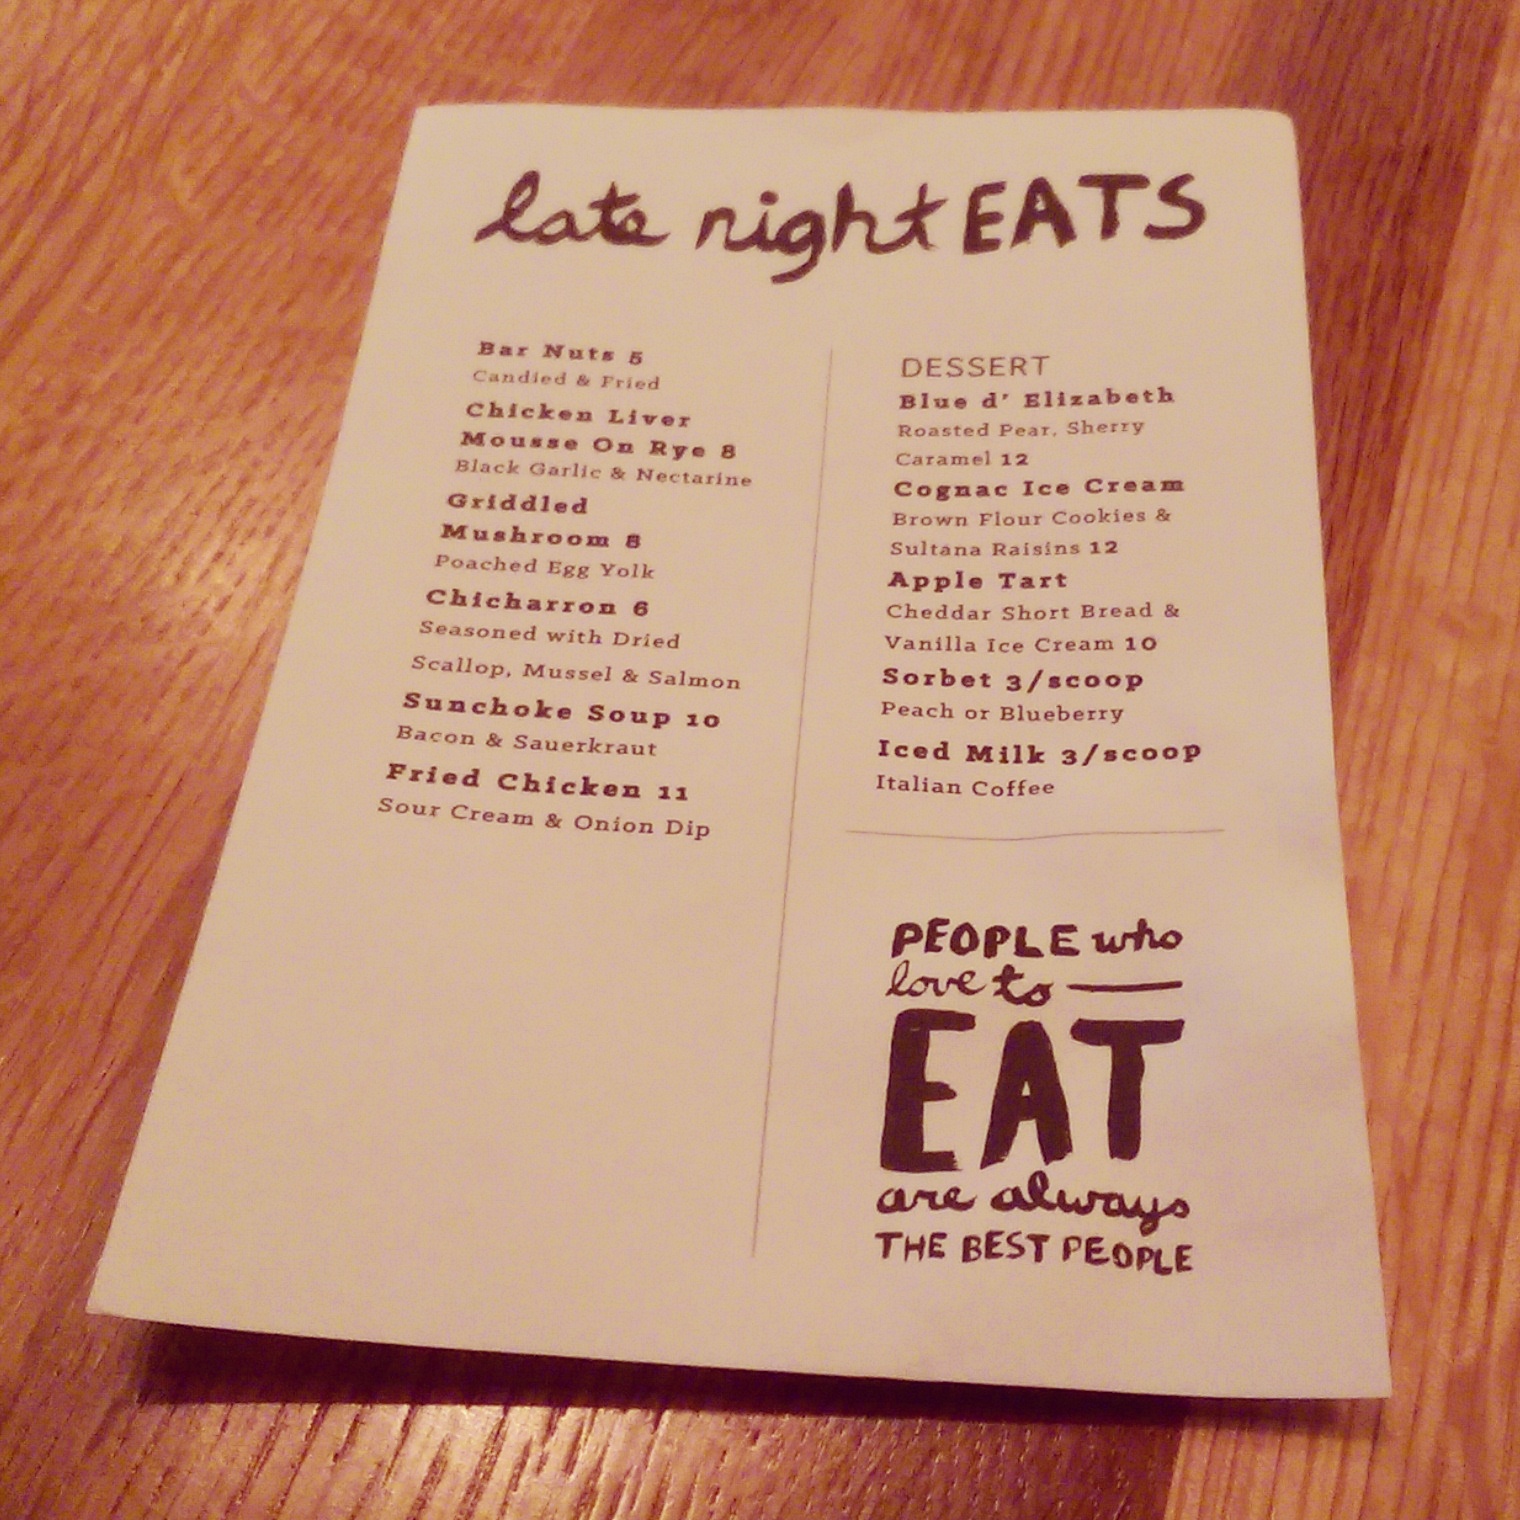 late night EATS
Bar Nuts 5
Candied & Fried
Chicken Liver
Mousse On Rye 8
Black Garlic & Nectarine
Griddled
Mushroom 8
Poached Egg Yolk
Chicharron 6
Seasoned with Dried
Scallop, Mussel & Salmon
Sunchoke Soup 10
Bacon & Sauerkraut
Fried Chicken 11
Sour Cream & Onion Dip
DESSERT
Blue d' Elizabeth
Roasted Pear, Sherry
Caramel 12
Cognac Ice Cream
Brown Flour Cookies &
Sultana Raisins 12
Apple Tart
Cheddar Short Bread &
Vanilla Ice Cream 10
Sorbet 3/scoop
Peach or Blueberry
Iced Milk 3/scoop
Italian Coffee
PEOPLE who
love to
EAT
are always
THE BEST PEOPLE